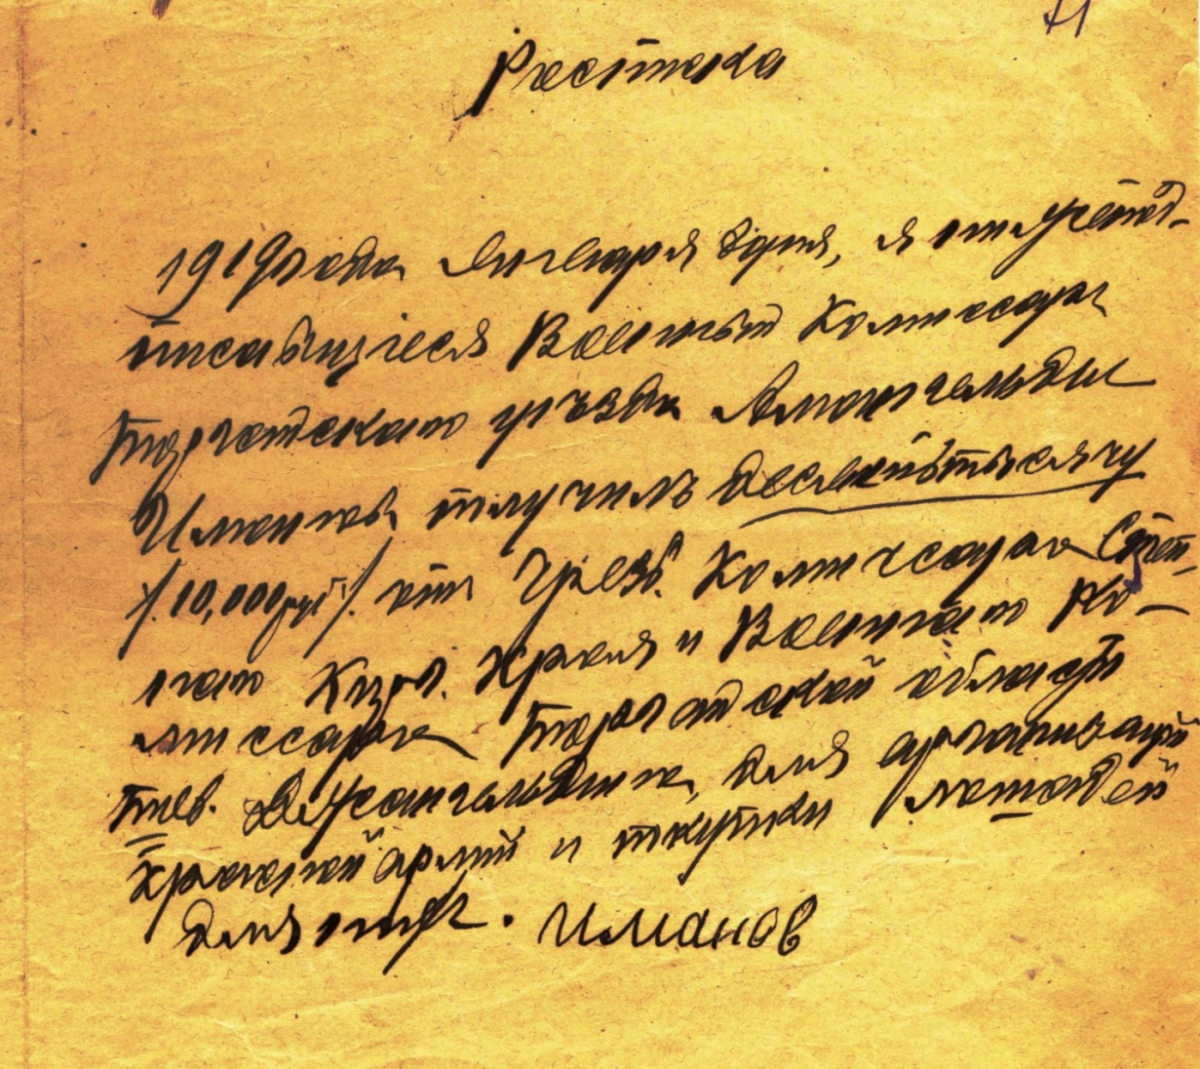 71
Росписка
1919 года Января дня, я нижепод-
писавшиеся Военный Комиссар
Тургайскаго уъзда Амангельды
Иманов получилъ десять тысячу
/.10,000 руб/. от Чрезв. Комиссара Степ-
наго Кирг. Края и Военнаго Ко-
миссара Тургайской области
тов. Джангильдина, для организаций
Красной армий и покупки лошадей
для них. Иманов